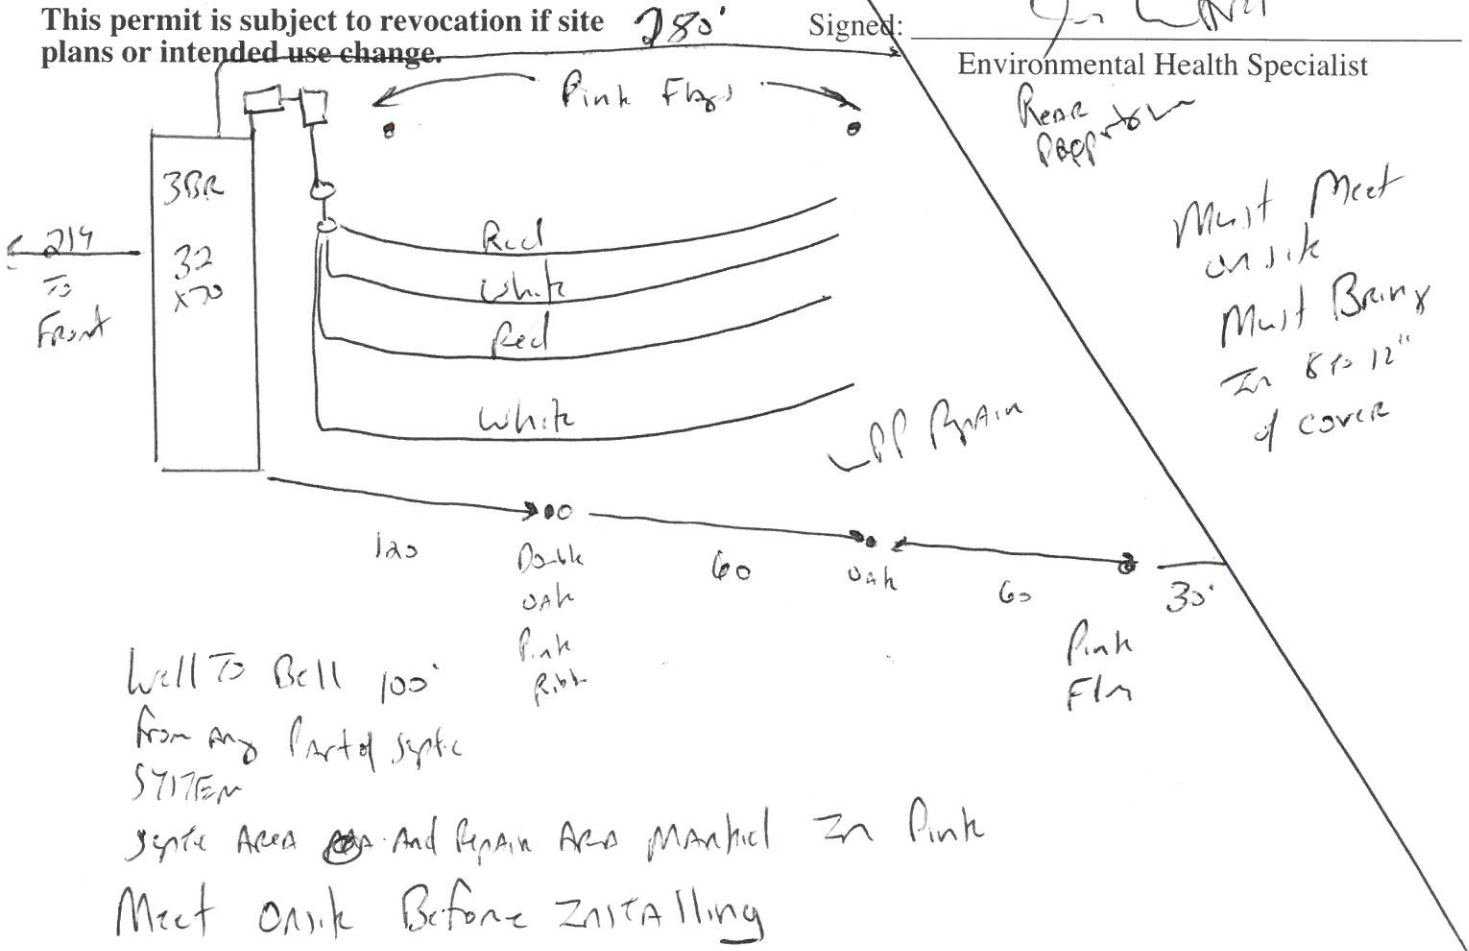 This permit is subject to revocation if site
plans or intended use change.
280'
Signed:
Environmental Health Specialist
Pink Flags
Rear
3BR
32
x70
214
To
Front
Red
White
Red
White
Must Meet
onsite
Must Bring
In 8 to 12"
of cover
LPP Repair
120
Double
oak
Pink
Ribb
60
oak
60
Pink
Flag
30'
Well To Be 100'
from any Part of Septic
SYSTEM
Septic Area And Repair Area Marked In Pink
Meet Onsite Before Installing